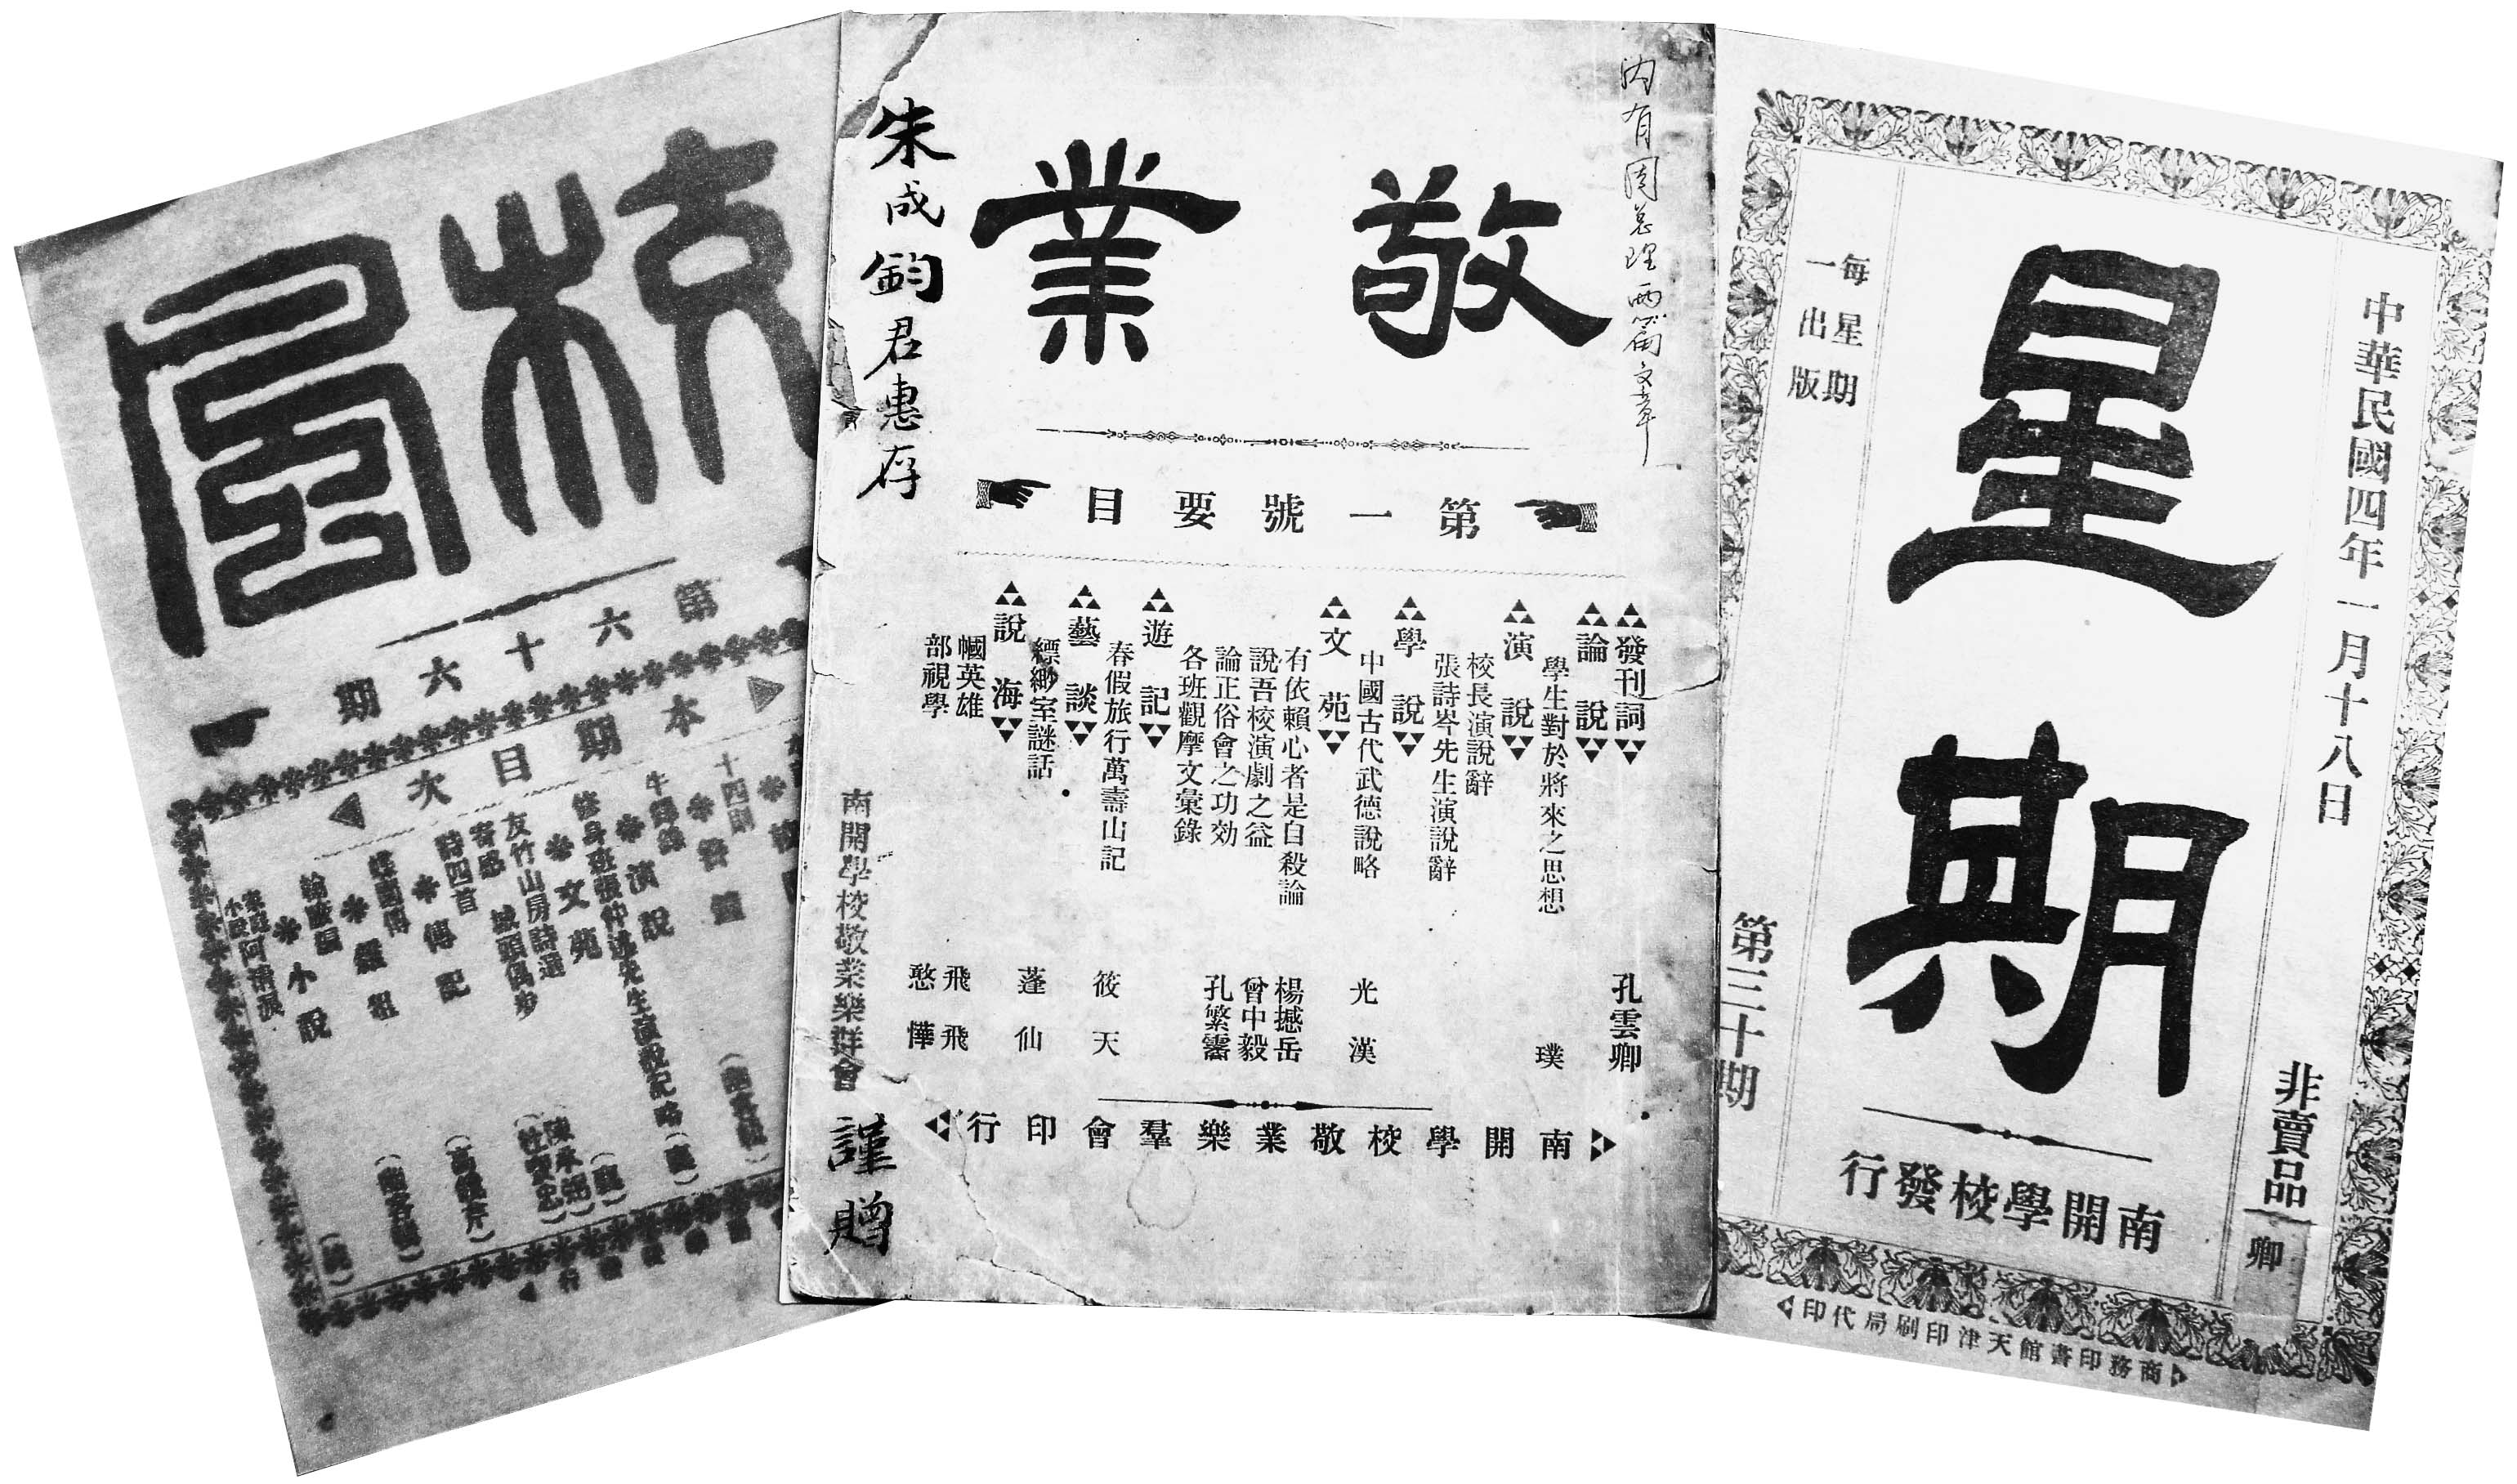 校風
第六十六期
本期目次
十四則
演說
修身班張仲述先生演說紀略
文苑
友竹山房詩選
城頭偶步
寄感
詩四首
傳記
小說
敬業
內有周總理兩篇文章
朱成鈞君惠存
南開學校敬業樂群會
謹贈
第一號要目
發刊詞 孔雲卿
論說
學生對於將來之思想 璞
演說
校長演說辭
張詩岑先生演說辭
學說
中國古代武德說略 光漢
文苑
有依賴心者是自殺論 楊撼岳
說吾校演劇之益 曾中毅
論正俗會之功効 孔繁霱
各班觀摩文彙錄
遊記
春假旅行萬壽山記 筱天
藝談
縹緲室謎話 蓬仙
說海
巾幗英雄 飛飛
部視學 憨憚
南開學校敬業樂羣會印行
中華民國四年一月十八日
非賣品
卿
星期
每星期一出版
第三十期
南開學校發行
商務印書館天津印刷局代印